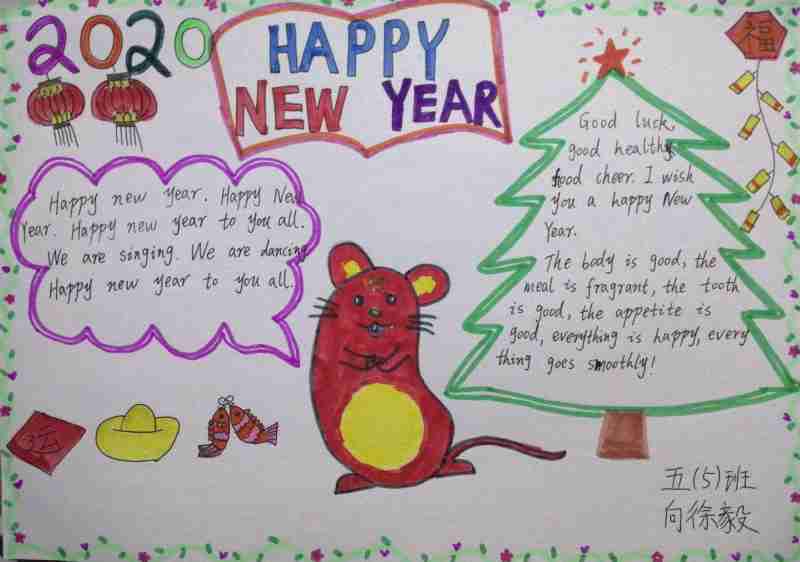 2020
HAPPY
NEW YEAR
福
Happy new year. Happy New
Year. Happy new year to you all.
We are singing. We are dancing
Happy new year to you all.
Good luck,
good health,
good cheer. I wish
you a happy New
Year.
The body is good, the
meal is fragrant, the tooth
is good, the appetite is
good, everything is happy, every
thing goes smoothly!
五(5)班
向徐毅